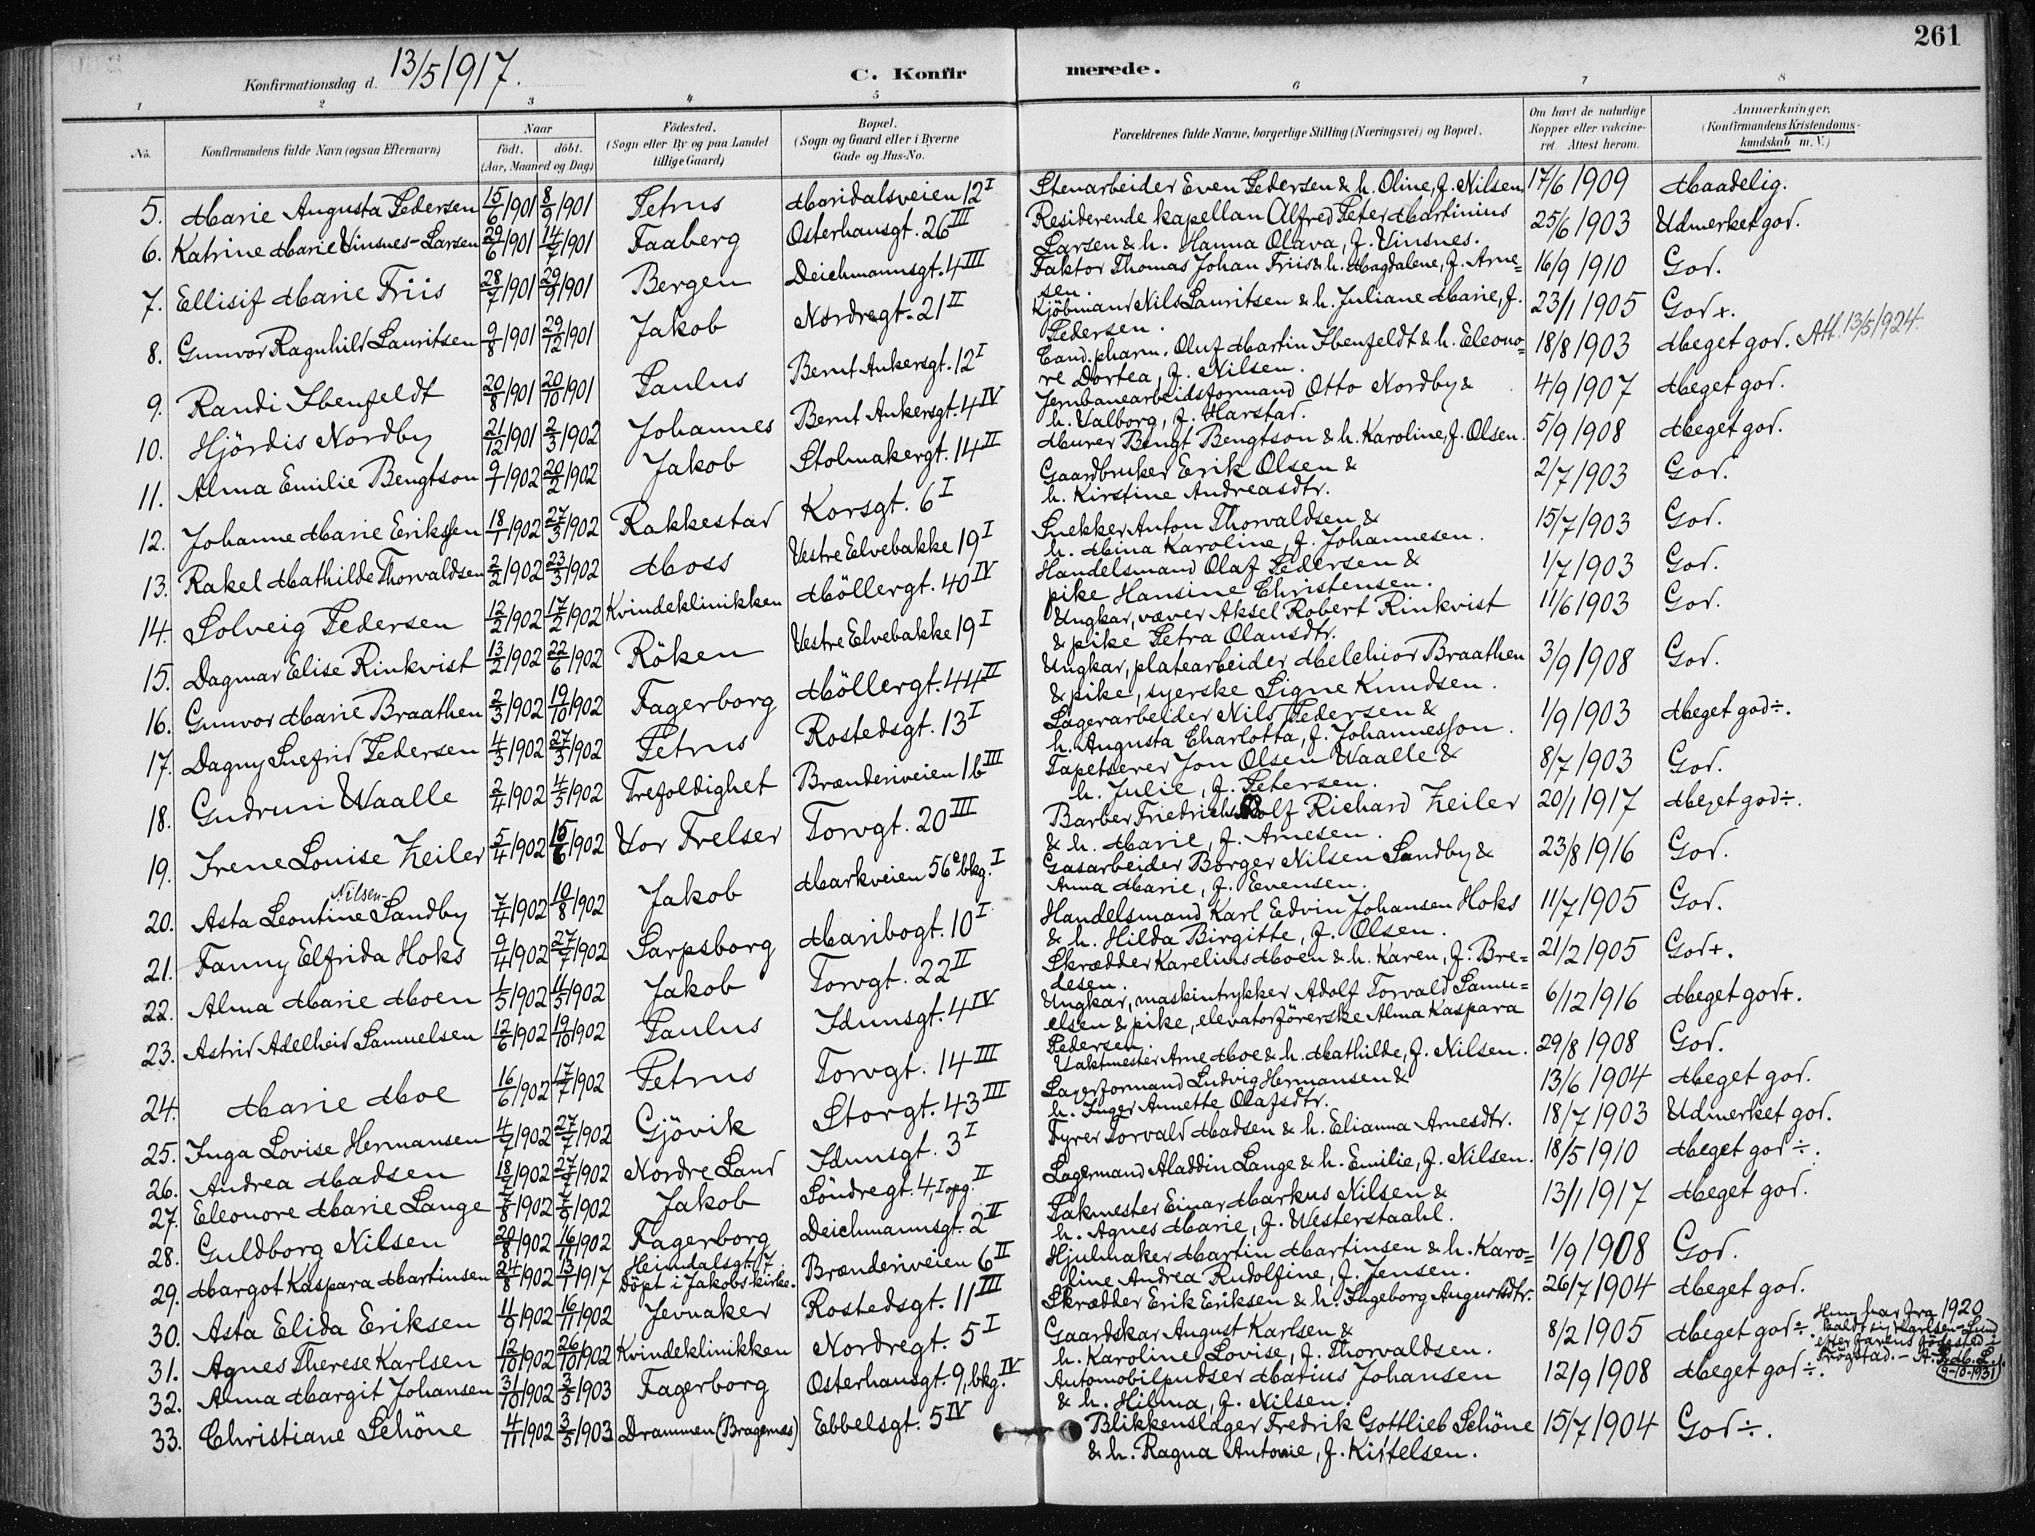 261
Konfirmationsdag d. 13/5 1917.
C. Konfirmerede.
1 2 3 4 5 6 7 8
No. Konfirmandens fulde Navn (ogsaa Efternavn) Naar født. døbt. (Aar, Maaned og Dag) Fødested. (Sogn eller By og paa Landet tillige Gaard) Bopæl. (Sogn og Gaard eller i Byerne Gade og Hus-No. Forældrenes fulde Navne, borgerlige Stilling (Næringsvei) og Bopæl. Om havt de naturlige Kopper eller vakcineret Attest herom. Anmærkninger. (Konfirmandens Kristendomskundskab m. V.)
5. Marie Augusta Pedersen 15/6 1901 8/9 1901 Petrus Maridalsveien 12 I Stenarbeider Even Pedersen & h. Oline, f. Nilsen. 17/6 1909 Maadelig.
6. Katrine Marie Vinsnes-Larsen 29/6 1901 14/7 1901 Faaberg Osterhausgt. 26 III Residerende kapellan Alfred Peter Martinius
Larsen & h. Hanna Olava, f. Vinsnes. 25/6 1903 Udmerket god.
7. Ellisif Marie Friis 28/7 1901 29/9 1901 Bergen Deichmannsgt. 4 III Faktor Thomas Johan Friis & h. Magdalene, f. Arne=
sen. 16/9 1910 God.
8. Gunvor Ragnhild Lauritsen 9/8 1901 29/12 1901 Jakob Nordregt. 21 II Kjöbmand Nils Lauritsen & h. Juliane Marie, f.
Pedersen. 23/1 1905 God +.
9. Randi Ibenfeldt 20/8 1901 20/10 1901 Paulus Bernt Ankersgt. 12 I Cand. pharm. Oluf Martin Ibenfeldt & h. Eleono=
re Dortea, f. Nilsen. 18/8 1903 Meget god. Att. 13/5 1924.
10. Hjördis Nordby 21/12 1901 2/3 1902 Johannes Bernt Ankersgt. 4 IV Jernbanearbeidsformand Otto Nordby &
h. Valborg, f. Harstad. 4/9 1907 Meget god.
11. Alma Emilie Bengtson 9/1 1902 20/2 1902 Jakob Stolmakergt. 14 II Murer Bengt Bengtson & h. Karoline, f. Olsen. 5/9 1908 Meget god.
12. Johanne Marie Eriksen 18/1 1902 27/3 1902 Rakkestad Korsgt. 6 I Gaardbruker Erik Olsen &
h. Kirstine Andreasdtr. 2/7 1903 God.
13. Rakel Mathilde Thorvaldsen 2/2 1902 23/3 1902 Moss Vestre Elvebakke 19 I Snekker Anton Thorvaldsen &
h. Mina Karoline, f. Johannesen. 15/7 1903 God.
14. Solveig Pedersen 12/2 1902 17/2 1902 Kvindeklinikken Möllergt. 40 IV Handelsmand Olaf Pedersen &
pike Hansine Christensen. 1/7 1903 God.
15. Dagmar Elise Rinkvist 13/2 1902 22/6 1902 Röken Vestre Elvebakke 19 I Ungkar, væver Aksel Robert Rinkvist
& pike Petra Olausdtr. 11/6 1903 God.
16. Gunvor Marie Braathen 2/3 1902 19/10 1902 Fagerborg Möllergt. 44 II Ungkar, platearbeider Melchior Braathen
& pike, syerske Signe Knudsen. 3/9 1908 God.
17. Dagny Snefrid Pedersen 4/3 1902 27/3 1902 Petrus Rostedsgt. 13 I Lagerarbeider Nils Pedersen &
h. Augusta Charlotta, f. Johannesson. 1/9 1903 Meget god ÷.
18. Gudrun Waalle 2/4 1902 4/5 1902 Trefoldighet Brænderiveien 16 III Tapetserer Jon Olsen Waalle &
h. Julie, f. Petersen. 8/7 1903 God.
19. Irene Louise Zeiler 5/4 1902 15/6 1902 Vor Frelser Torvgt. 20 III Barber Friedrich Rolf Richard Zeiler
& h. Marie, f. Arnesen. 20/1 1917 Meget god ÷.
20. Asta Leontine Nilsen- Sandby 7/4 1902 10/8 1902 Jakob Markveien 56 c bkg. I Gasarbeider Borger Nilsen Sandby &
Anna Marie, f. Evensen. 23/8 1916 God.
21. Fanny Elfrida Hoks 9/4 1902 27/7 1902 Sarpsborg Maribogt. 10 I Handelsmand Karl Edvin Johansen Hoks
& h. Hilda Birgitte, f. Olsen. 11/7 1905 God.
22. Alma Marie Moen 1/5 1902 11/5 1902 Jakob Torvgt. 22 II Skrædder Karelius Moen & h. Karen, f. Bre=
desen. 21/2 1905 God +.
23. Astrid Adelheid Samuelsen 12/6 1902 19/10 1902 Paulus Idunsgt. 4 IV Ungkar, maskintrykker Adolf Torvald Samu=
elsen & pike, elevatorförerske Alma Kaspara
Pedersen. 6/12 1916 Meget god +.
24. Marie Moe 16/6 1902 17/7 1902 Petrus Torvgt. 14 III Vaktmester Arne Moe & h. Mathilde, f. Nilsen. 29/8 1908 God.
25. Inga Lovise Hermansen 4/7 1902 27/7 1902 Gjövik Storgt. 43 III Lagerformand Ludvig Hermansen &
h. Inger Annette Olafsdtr. 13/6 1904 Meget god.
26. Andrea Madsen 18/7 1902 27/7 1902 Nordre Land Idunsgt. 3 I Fyrer Torvald Madsen & h. Elianna Arnesdtr. 18/7 1903 Udmerket god.
27. Eleonore Marie Lange 7/8 1902 7/9 1902 Jakob Söndregt. 4, I opg. II Lagermand Aladdin Lange & h. Emilie, f. Nilsen. 18/5 1910 Meget god ÷.
28. Guldborg Nilsen 20/8 1902 16/11 1902 Fagerborg Deichmannsgt. 2 II Takmester Einar Markus Nilsen &
h. Agnes Marie, f. Westerstaahl. 13/1 1917 Meget god.
29. Margot Kaspara Martinsen 24/8 1902 13/1 1917 Heimdalsgt. 17
Döpt i Jakobs kirke. Brænderiveien 6 II Hjulmaker Martin Martinsen & h. Karo=
line Andrea Rudolfine, f. Jensen. 1/9 1908 God.
30. Asta Elida Eriksen 4/9 1902 16/11 1902 Jevnaker Rostedsgt. 11 III Skrædder Erik Eriksen & h. Ingeborg Augustsdtr. 26/7 1904 Meget god.
31. Agnes Therese Karlsen 12/10 1902 26/10 1902 Kvindeklinikken Nordregt. 5 I Gaardskar August Karlsen &
h. Karoline Lovise, f. Thorvaldsen. 8/2 1905 Meget god ÷. Hun har fra 1920
kaldt sig Karlsen-Lund
efter farens födested i
Trögstad. -
9-10-1931
32. Anna Margit Johansen 31/10 1902 3/5 1903 Fagerborg Osterhausgt. 9, bkg. IV Automobilpudser Marius Johansen
& h. Hilma, f. Nilsen. 12/9 1908 Meget god ÷.
33. Christiane Schöne 4/11 1902 3/5 1903 Drammen (Bragernæs) Ebbelsgt. 5 IV Blikkenslager Fredrik Gottlieb Schöne
& h. Ragna Antonie, f. Kistelsen. 15/7 1904 God ÷.